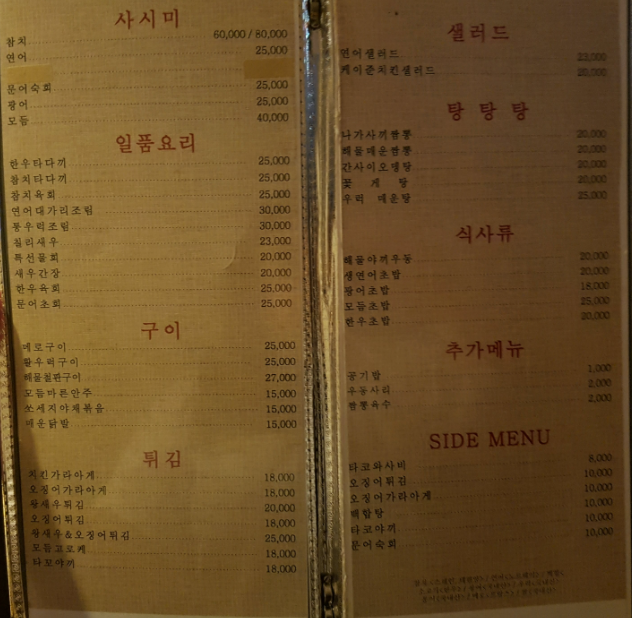 사시미
참치 60,000 / 80,000
연어 25,000
문어숙회 25,000
광어 25,000
모듬 40,000
일품요리
한우타다끼 25,000
참치타다끼 25,000
참치육회 25,000
연어대가리조림 30,000
통우럭조림 30,000
칠리새우 23,000
특선물회 20,000
새우간장 20,000
한우육회 25,000
문어초회 25,000
구이
메로구이 25,000
활우럭구이 25,000
해물철판구이 27,000
모듬마른안주 15,000
쏘세지야채볶음 15,000
매운닭발 15,000
튀김
치킨가라아게 18,000
오징어가라아게 18,000
왕새우튀김 20,000
오징어튀김 18,000
왕새우&오징어튀김 25,000
모듬고로케 18,000
타꼬야끼 18,000
샐러드
연어샐러드 23,000
케이준치킨샐러드 20,000
탕 탕 탕
나가사끼짬뽕 20,000
해물매운짬뽕 20,000
간사이오뎅탕 20,000
꽃 게 탕 20,000
우럭 매운탕 25,000
식사류
해물야끼우동 20,000
생연어초밥 20,000
광어초밥 18,000
모듬초밥 25,000
한우초밥 20,000
추가메뉴
공기밥 1,000
우동사리 2,000
짬뽕육수 2,000
SIDE MENU
타코와사비 8,000
오징어튀김 10,000
오징어가라아게 10,000
백합탕 10,000
타코야끼 10,000
문어숙회 10,000